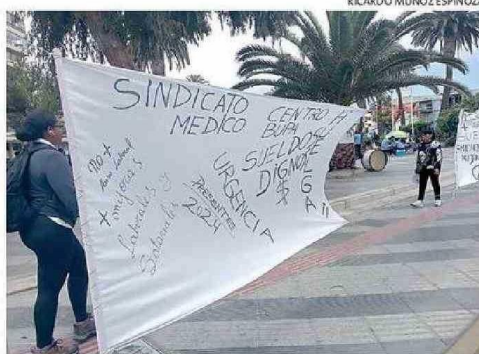 RICARDO MUÑOZ ESPINOZA
SINDICATO
MEDICO
CENTRO
BUPA
SUELDOS
DIGNO
$
URGENCIA
PRESENTES
2024
no +
laboral
+ mejoras
Laborales y
Salariales